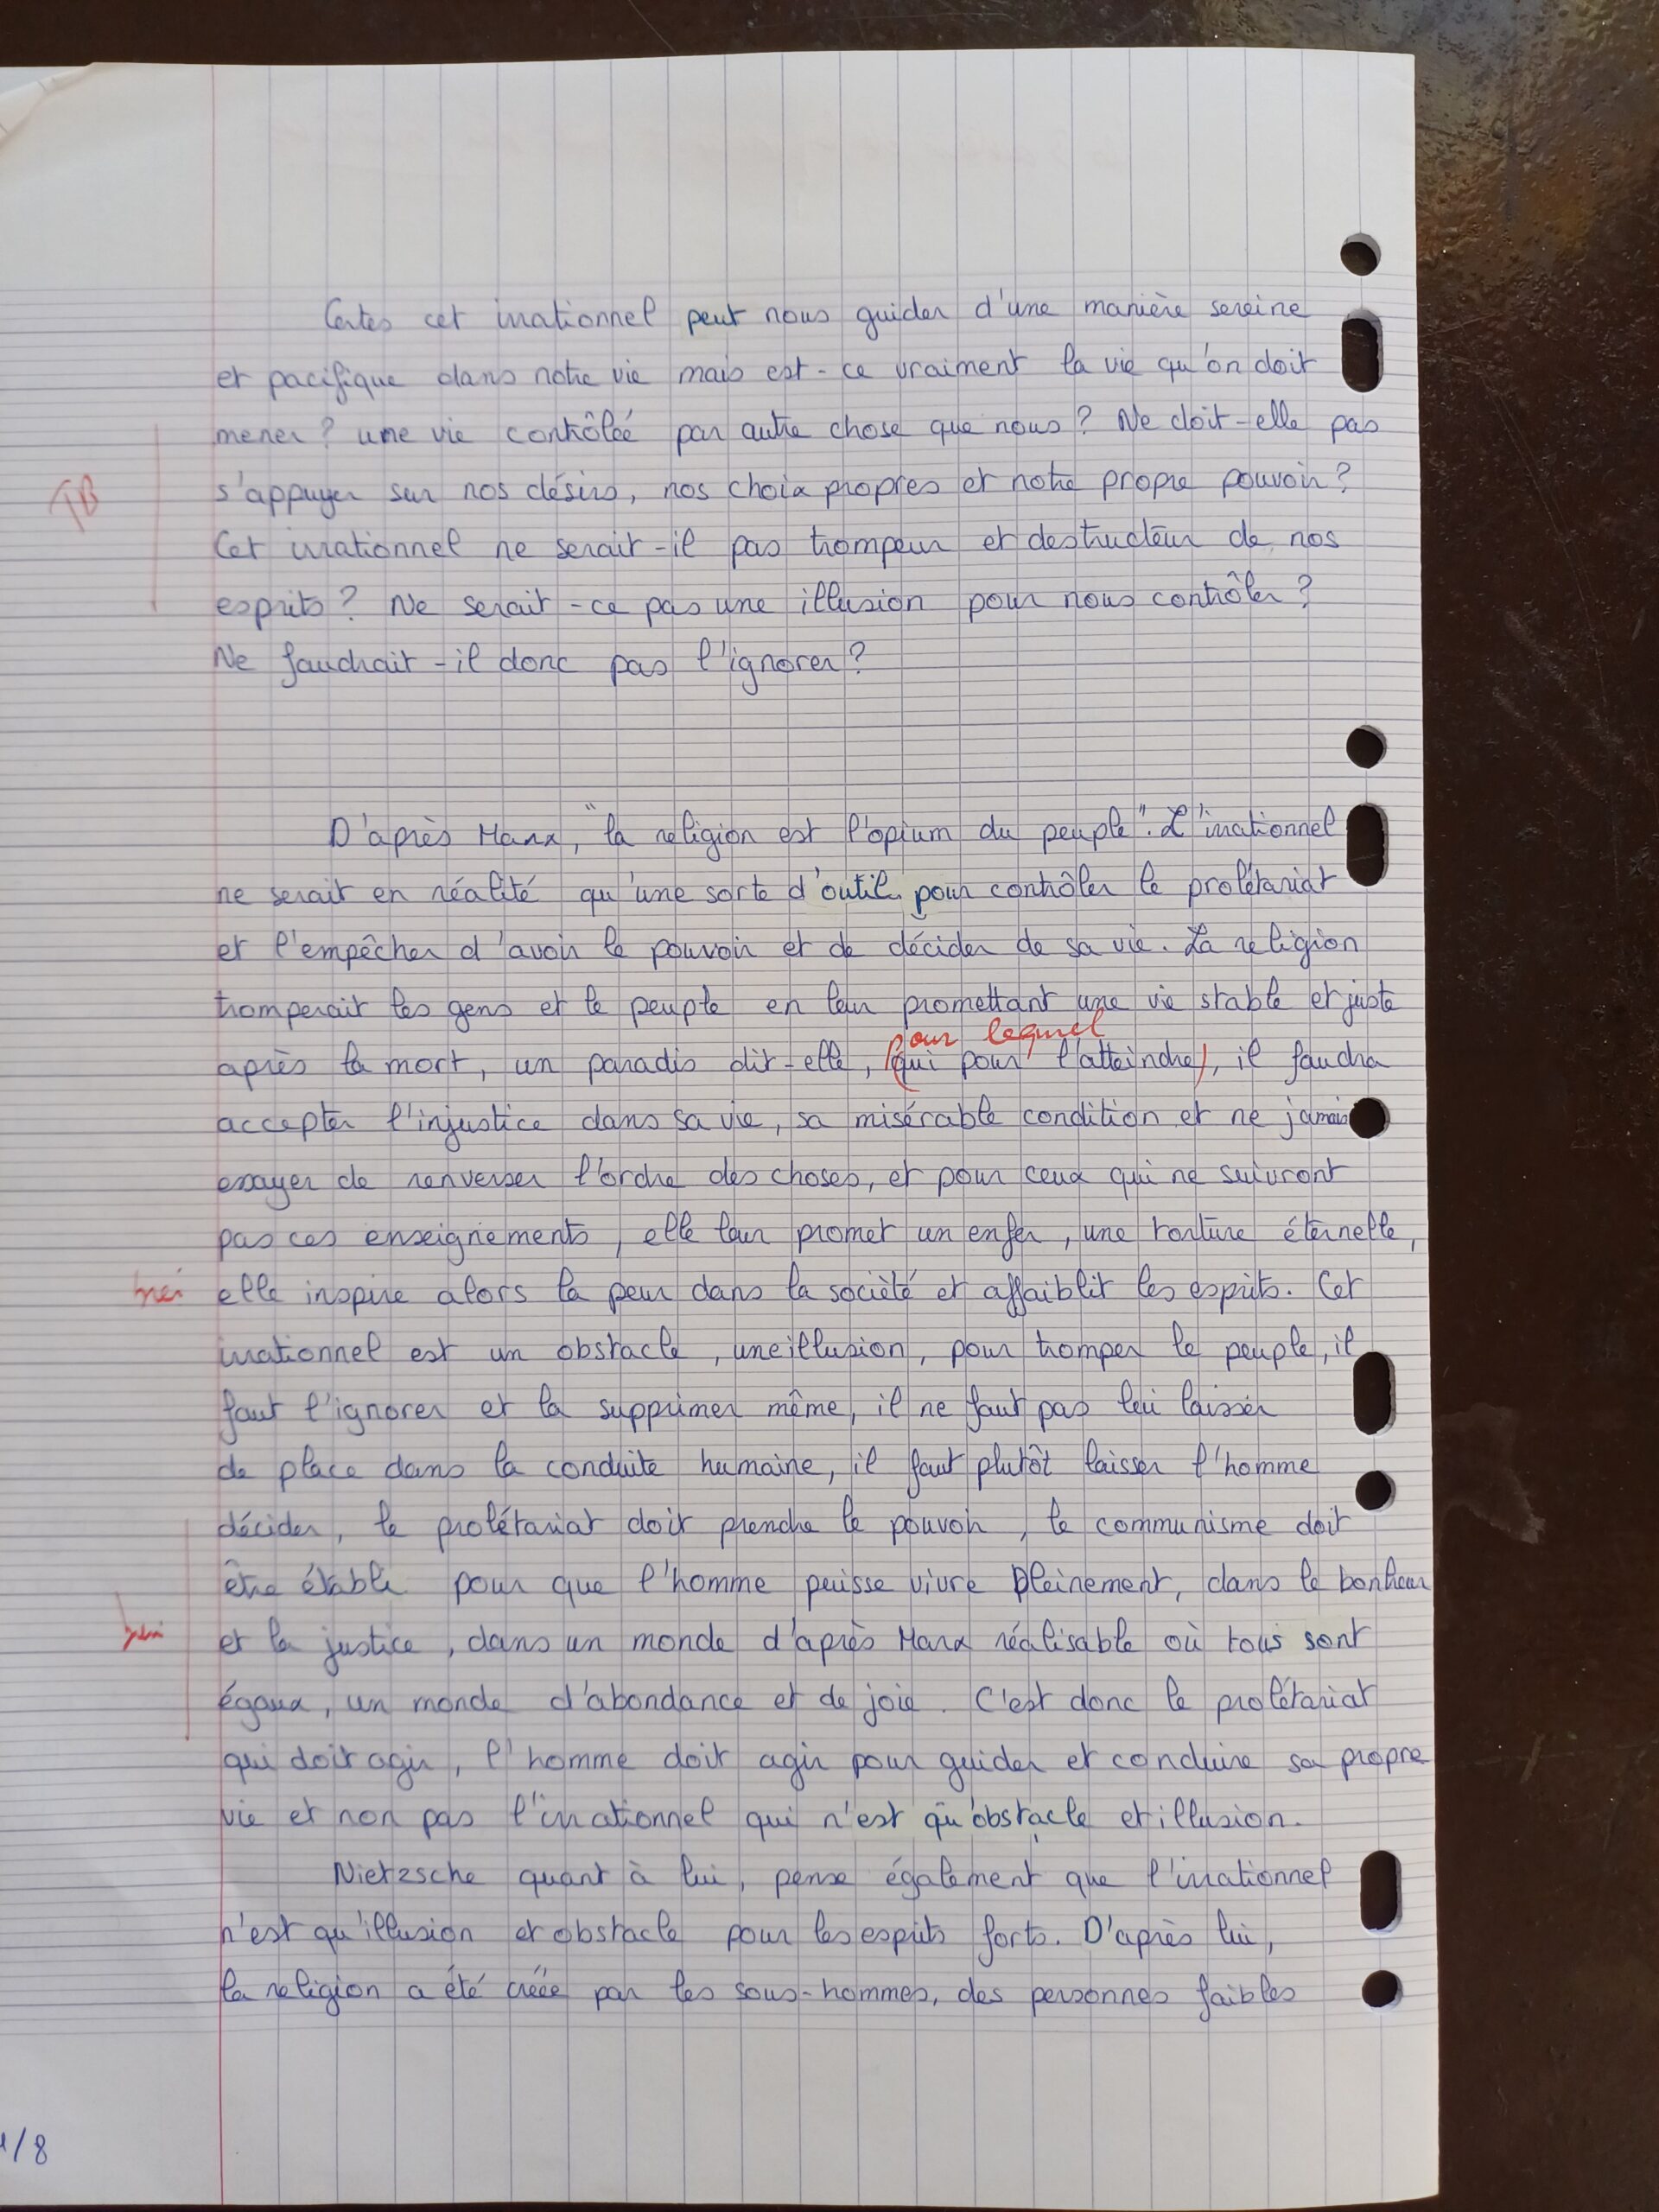 Certes cet irrationnel peut nous guider d'une manière sereine
et pacifique dans notre vie mais est-ce vraiment la vie qu'on doit
mener? une vie contrôlée par autre chose que nous? Ne doit-elle pas
TB
s'appuyer sur nos désirs, nos choix propres et notre propre pouvoir?
Cet irrationnel ne serait-il pas trompeur et destructeur de nos
esprits? Ne serait-ce pas une illusion pour nous contrôler?
Ne faudrait-il donc pas l'ignorer?
D'après Marx, "la religion est l'opium du peuple". L'irrationnel
ne serait en réalité qu'une sorte d'outil pour contrôler le prolétariat
et l'empêcher d'avoir le pouvoir et de décider de sa vie. La religion
tromperait les gens et le peuple en leur promettant une vie stable et juste
pour lequel
après la mort, un paradis dit-elle, (qui pour l'atteindre), il faudra
accepter l'injustice dans sa vie, sa misérable condition et ne jamais
essayer de renverser l'ordre des choses, et pour ceux qui ne suivront
pas ces enseignements, elle leur promet un enfer, une torture éternelle,
elle inspire alors la peur dans la société et affaiblit les esprits. Cet
irrationnel est un obstacle, une illusion, pour tromper le peuple, il
faut l'ignorer et la supprimer même, il ne faut pas lui laisser
de place dans la conduite humaine, il faut plutôt laisser l'homme
décider, le prolétariat doit prendre le pouvoir, le communisme doit
être établi pour que l'homme puisse vivre pleinement, dans le bonheur
et la justice, dans un monde d'après Marx réalisable où tous sont
égaux, un monde d'abondance et de joie. C'est donc le prolétariat
qui doit agir, l'homme doit agir pour guider et conduire sa propre
vie et non pas l'irrationnel qui n'est qu'obstacle et illusion.
Nietzsche quant à lui, pense également que l'irrationnel
n'est qu'illusion et obstacle pour les esprits forts. D'après lui,
la religion a été créée par les sous-hommes, des personnes faibles
/8